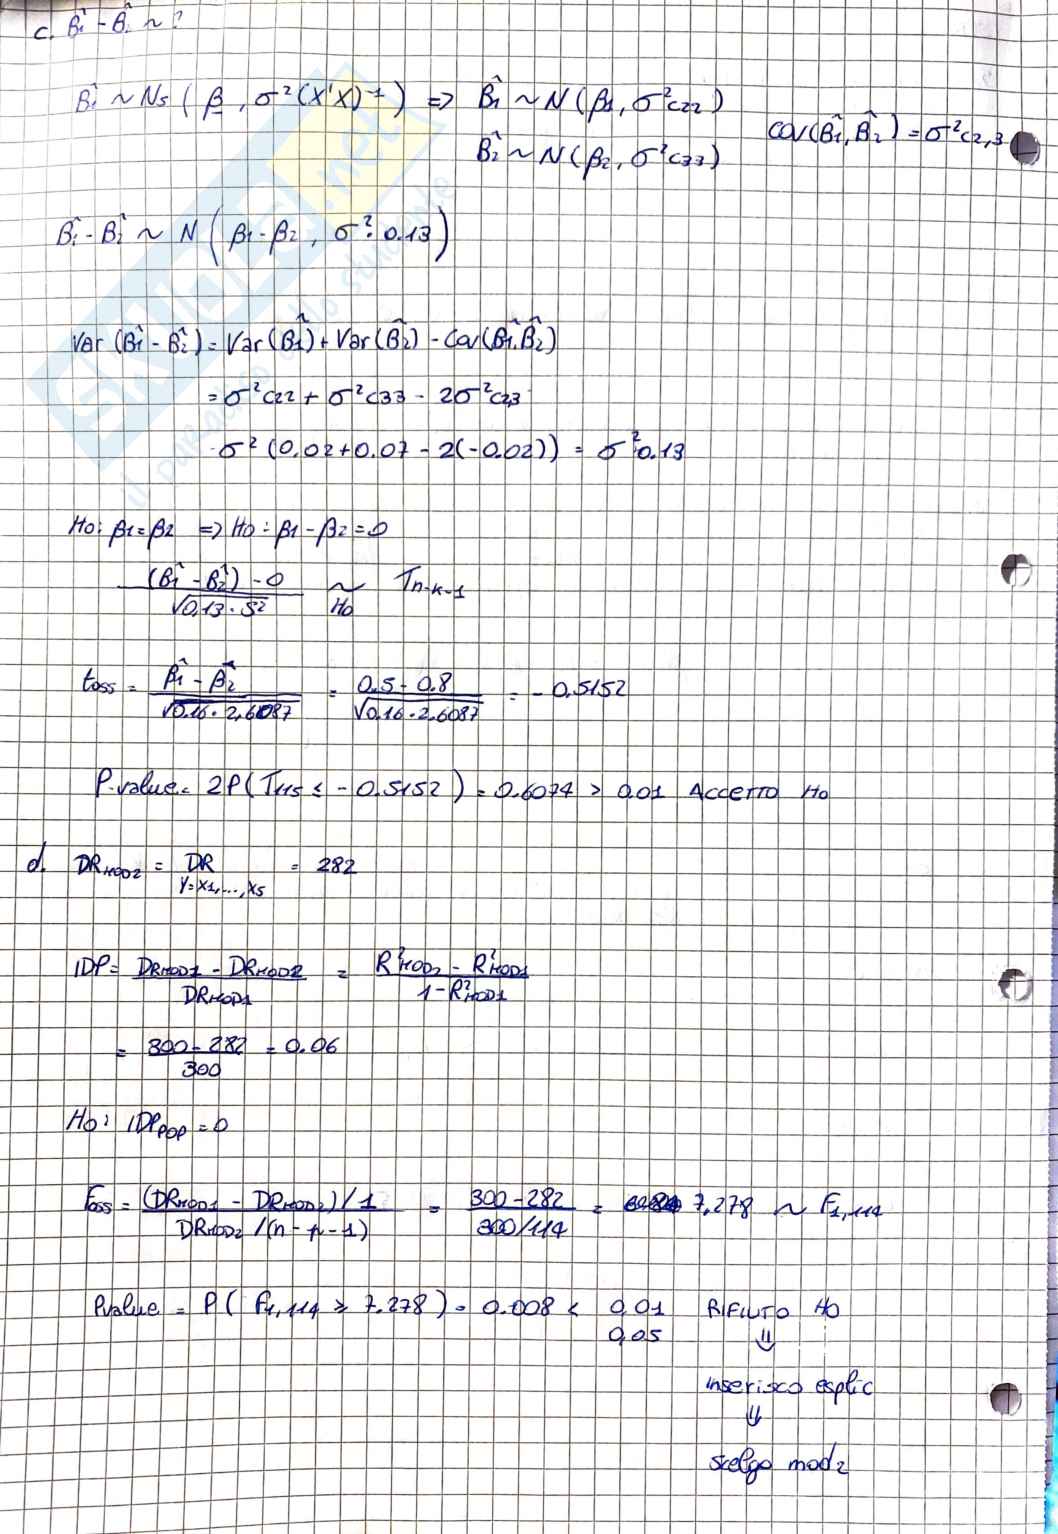 c. B̂1 - B̂2 ~ ?
B̂ ~ N5 (β, σ²(X'X)⁻¹) => B̂1 ~ N(β1, σ²c22)
Cov(B̂1, B̂2) = σ²c2,3
B̂2 ~ N(β2, σ²c33)
B̂1 - B̂2 ~ N(β1-β2, σ²·0.13)
Var(B̂1 - B̂2) = Var(B̂1) + Var(B̂2) - Cov(B̂1,B̂2)
= σ²c22 + σ²c33 - 2σ²c23
σ²(0.02+0.07 - 2(-0.02)) = σ²·0.13
H0: β1=β2 => H0: β1-β2=0
(B̂1 - B̂2) - 0 / √0,13·S² ~ H0 Tn-k-1
toss = β̂1 - β̂2 / √0.16·2,6087 = 0.5-0.8 / √0.16·2.6087 = -0,5152
P-value = 2P(T115 ≤ -0.5152) = 0.6074 > 0,01 Accetto H0
d. DRMOD2 = DR Y=X1,...,X5 = 282
IDP = DRMOD1 - DRMOD2 / DRMOD1 = R²MOD2 - R²MOD1 / 1-R²MOD1
= 300-282 / 300 = 0.06
H0: IDPPOP = 0
Foss = (DRMOD1 - DRMOD2)/1 / DRMOD2/(n-p-1) = 300-282 / 300/114 = 7,278 ~ F1,114
Pvalue = P(F1,114 ≥ 7.278) = 0.008 < 0,01 RIFIUTO H0
0,05 ⇓
inserisco esplic
⇓
scelgo mod2
SKUOLA.net
il paradiso dello studente